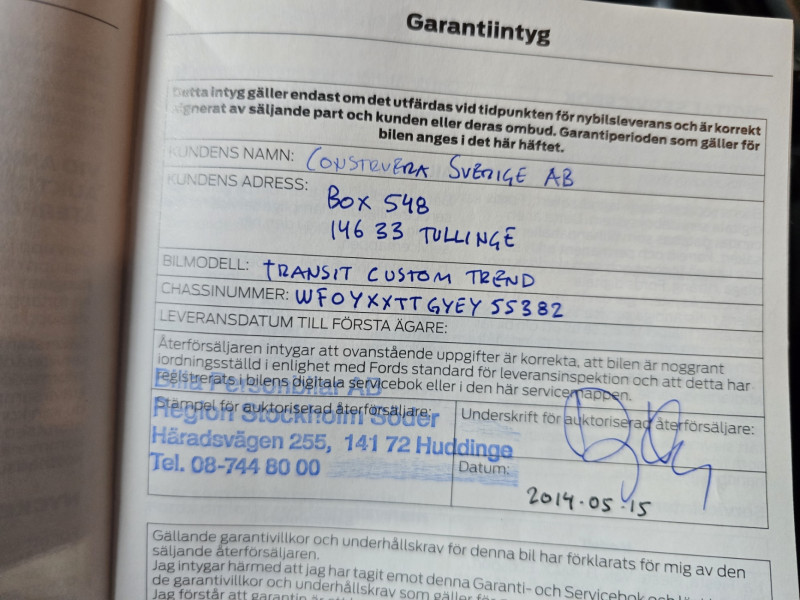 Garantiintyg
Detta intyg gäller endast om det utfärdas vid tidpunkten för nybilsleverans och är korrekt
signerat av säljande part och kunden eller deras ombud. Garantiperioden som gäller för
bilen anges i det här häftet.
KUNDENS NAMN: CONSTRUERA SVERIGE AB
KUNDENS ADRESS: BOX 548
146 33 TULLINGE
BILMODELL: TRANSIT CUSTOM TREND
CHASSINUMMER: WF0YXXTTGYEY55382
LEVERANSDATUM TILL FÖRSTA ÄGARE:
Återförsäljaren intygar att ovanstående uppgifter är korrekta, att bilen är noggrant
iordningsställd i enlighet med Fords standard för leveransinspektion och att detta har
registrerats i bilens digitala servicebok eller i den här servicemappen.
Bilia Personbilar AB
Stämpel för auktoriserad återförsäljare:
Region Stockholm Söder
Häradsvägen 255, 141 72 Huddinge
Tel. 08-744 80 00
Underskrift för auktoriserad återförsäljare:
Datum:
2014.05.15
Gällande garantivillkor och underhållskrav för denna bil har förklarats för mig av den
säljande återförsäljaren.
Jag intygar härmed att jag har tagit emot denna Garanti- och Servicebok och
de garantivillkor och underhållskrav som gäller för
Jag förstår att garantin är